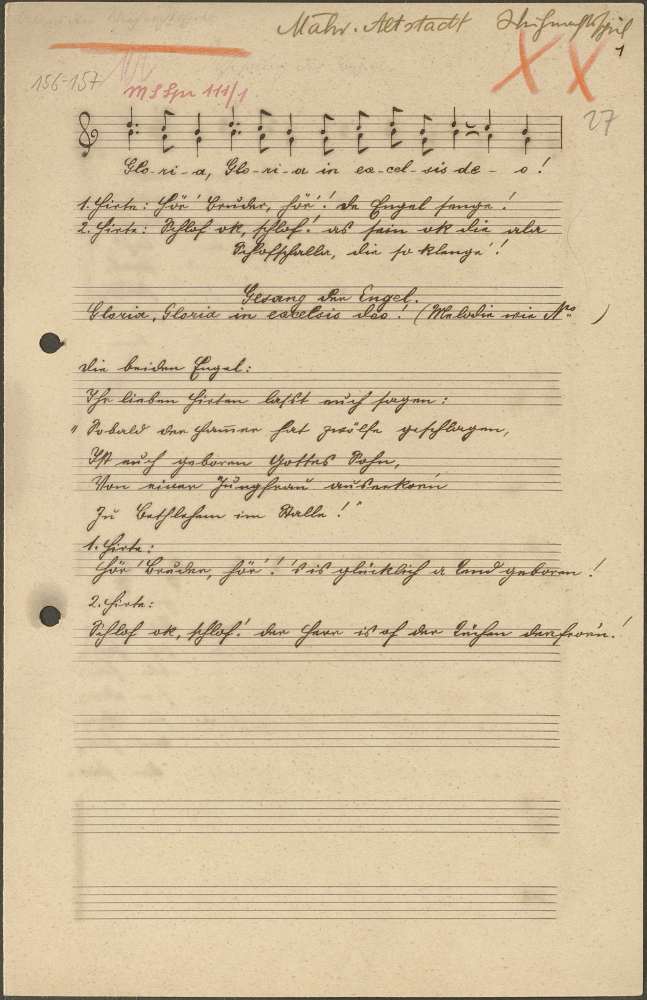 Mähr. Altstadt Weihnachtsspiel
1
156-157
XX
MSSpr 111/1
27
Glo-ri-a, Glo-ri-a in ex-cel-sis de-o!
1. Hirte: Hör' Bruder, hör'! de Engel senge!
2. Hirte: Schlof ok, schlof! as sein ok die ala
Schofschalla, die so klenge'!
Gesang der Engel.
Gloria, Gloria in excelsis deo! (Melodie wie No )
Die beiden Engel:
Ihr lieben Hirten lasst euch sagen:
" Sobald der Ham̄er hat zwölfe geschlagen,
Ist euch geboren Gottes Sohn,
Von einer Jungfrau auserkorn
Zu Bethlehem im Stalle!"
1. Hirte:
Hör' Bruder, hör'! 's is glücklich a Kend geboren!
2. Hirte:
Schlof ok, schlof! der Herr is of der derfrorn!